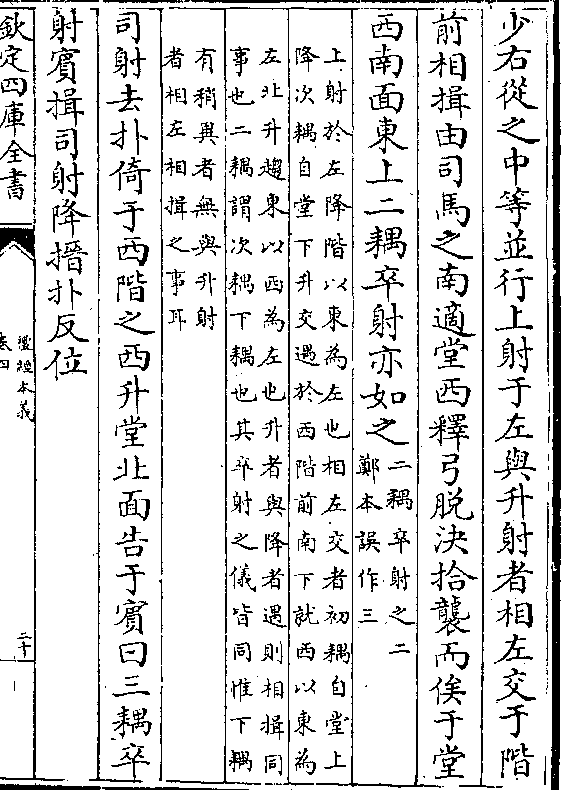 少右從之中等並行上射于左與升射者相左交于階
前相揖由司馬之南適堂西釋弓脫決拾襲而俟于堂
西南面東上二耦卒射亦如之
二耦卒射之二
鄭本誤作三
上射於左降階以東為左也相左交者初耦自堂上
降次耦自堂下升交遇於西階前南下就西以東為
左北升趨東以西為左也升者與降者遇則相揖同
事也二耦謂次耦下耦也其卒射之儀皆同惟下耦
有稍異者無與升射
者相左相揖之事耳
司射去扑倚于西階之西升堂北面告于賓曰三耦卒
射賓揖司射降搢扑反位
欽定四庫全書
禮經本義
卷四
二十